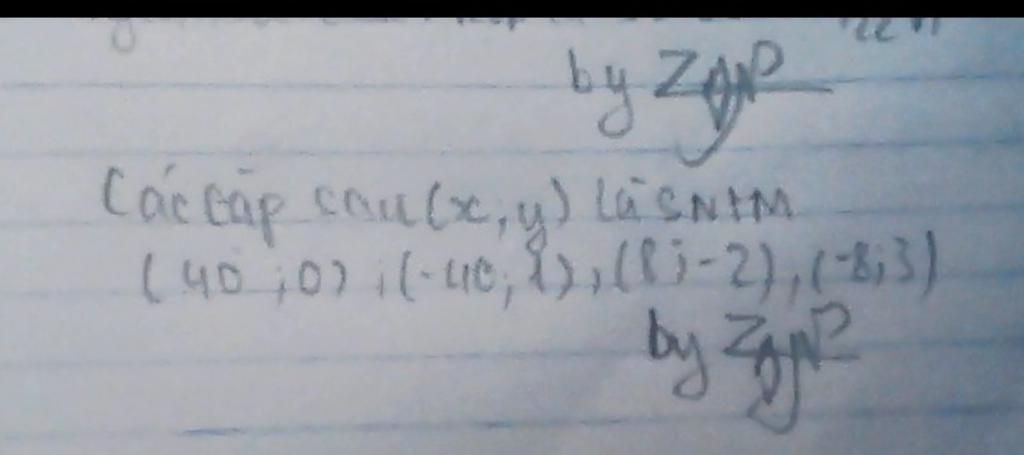 by
Các cặp sau (x, y) là SNTM
(40 ; 0) ; (-40, 1), (8 ; -2), (-8 ; 3)
by